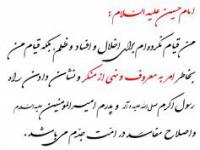 امام حسین علیه السلام:
من قیام نکرده ام برای اخلال و افساد و ظلم، بلکه قیام من
بخاطر امر به معروف و نهی از منکر و نشان دادن راه
رسول اکرم صلی الله علیه و آله و پدرم امیرالمؤمنین علیه السلام
و اصلاح مفاسد در امت جدم می باشد.